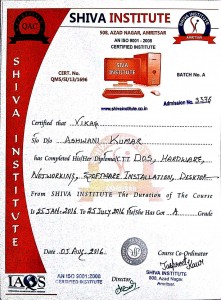 SHIVA INSTITUTE
508, AZAD NAGAR, AMRITSAR
AN ISO 9001 - 2008
CERTIFIED INSTITUTE
QAC
CERT. NO.
QMS/G/13/1696
BATCH No. A
www.shivainstitute.co.in
Admission No. 3336
SHIVA INSTITUTE
Certified that Vikas
S/o D/o Ashwani Kumar
has Completed His/Her Diploma I.T.T DOS, Hardware,
Networking, Software Installation, Desktop
From SHIVA INSTITUTE The Duration of The Course
to 25 Jan. 2016 To 25 July 2016 He/she Has Got A Grade
Date 05 Aug. 2016
Course Co-Ordinator
Director
SHIVA INSTITUTE
508, Azad Nagar,
Amritsar.
IAQS
AN ISO 9001:2008
CERTIFIED INSTITUTE